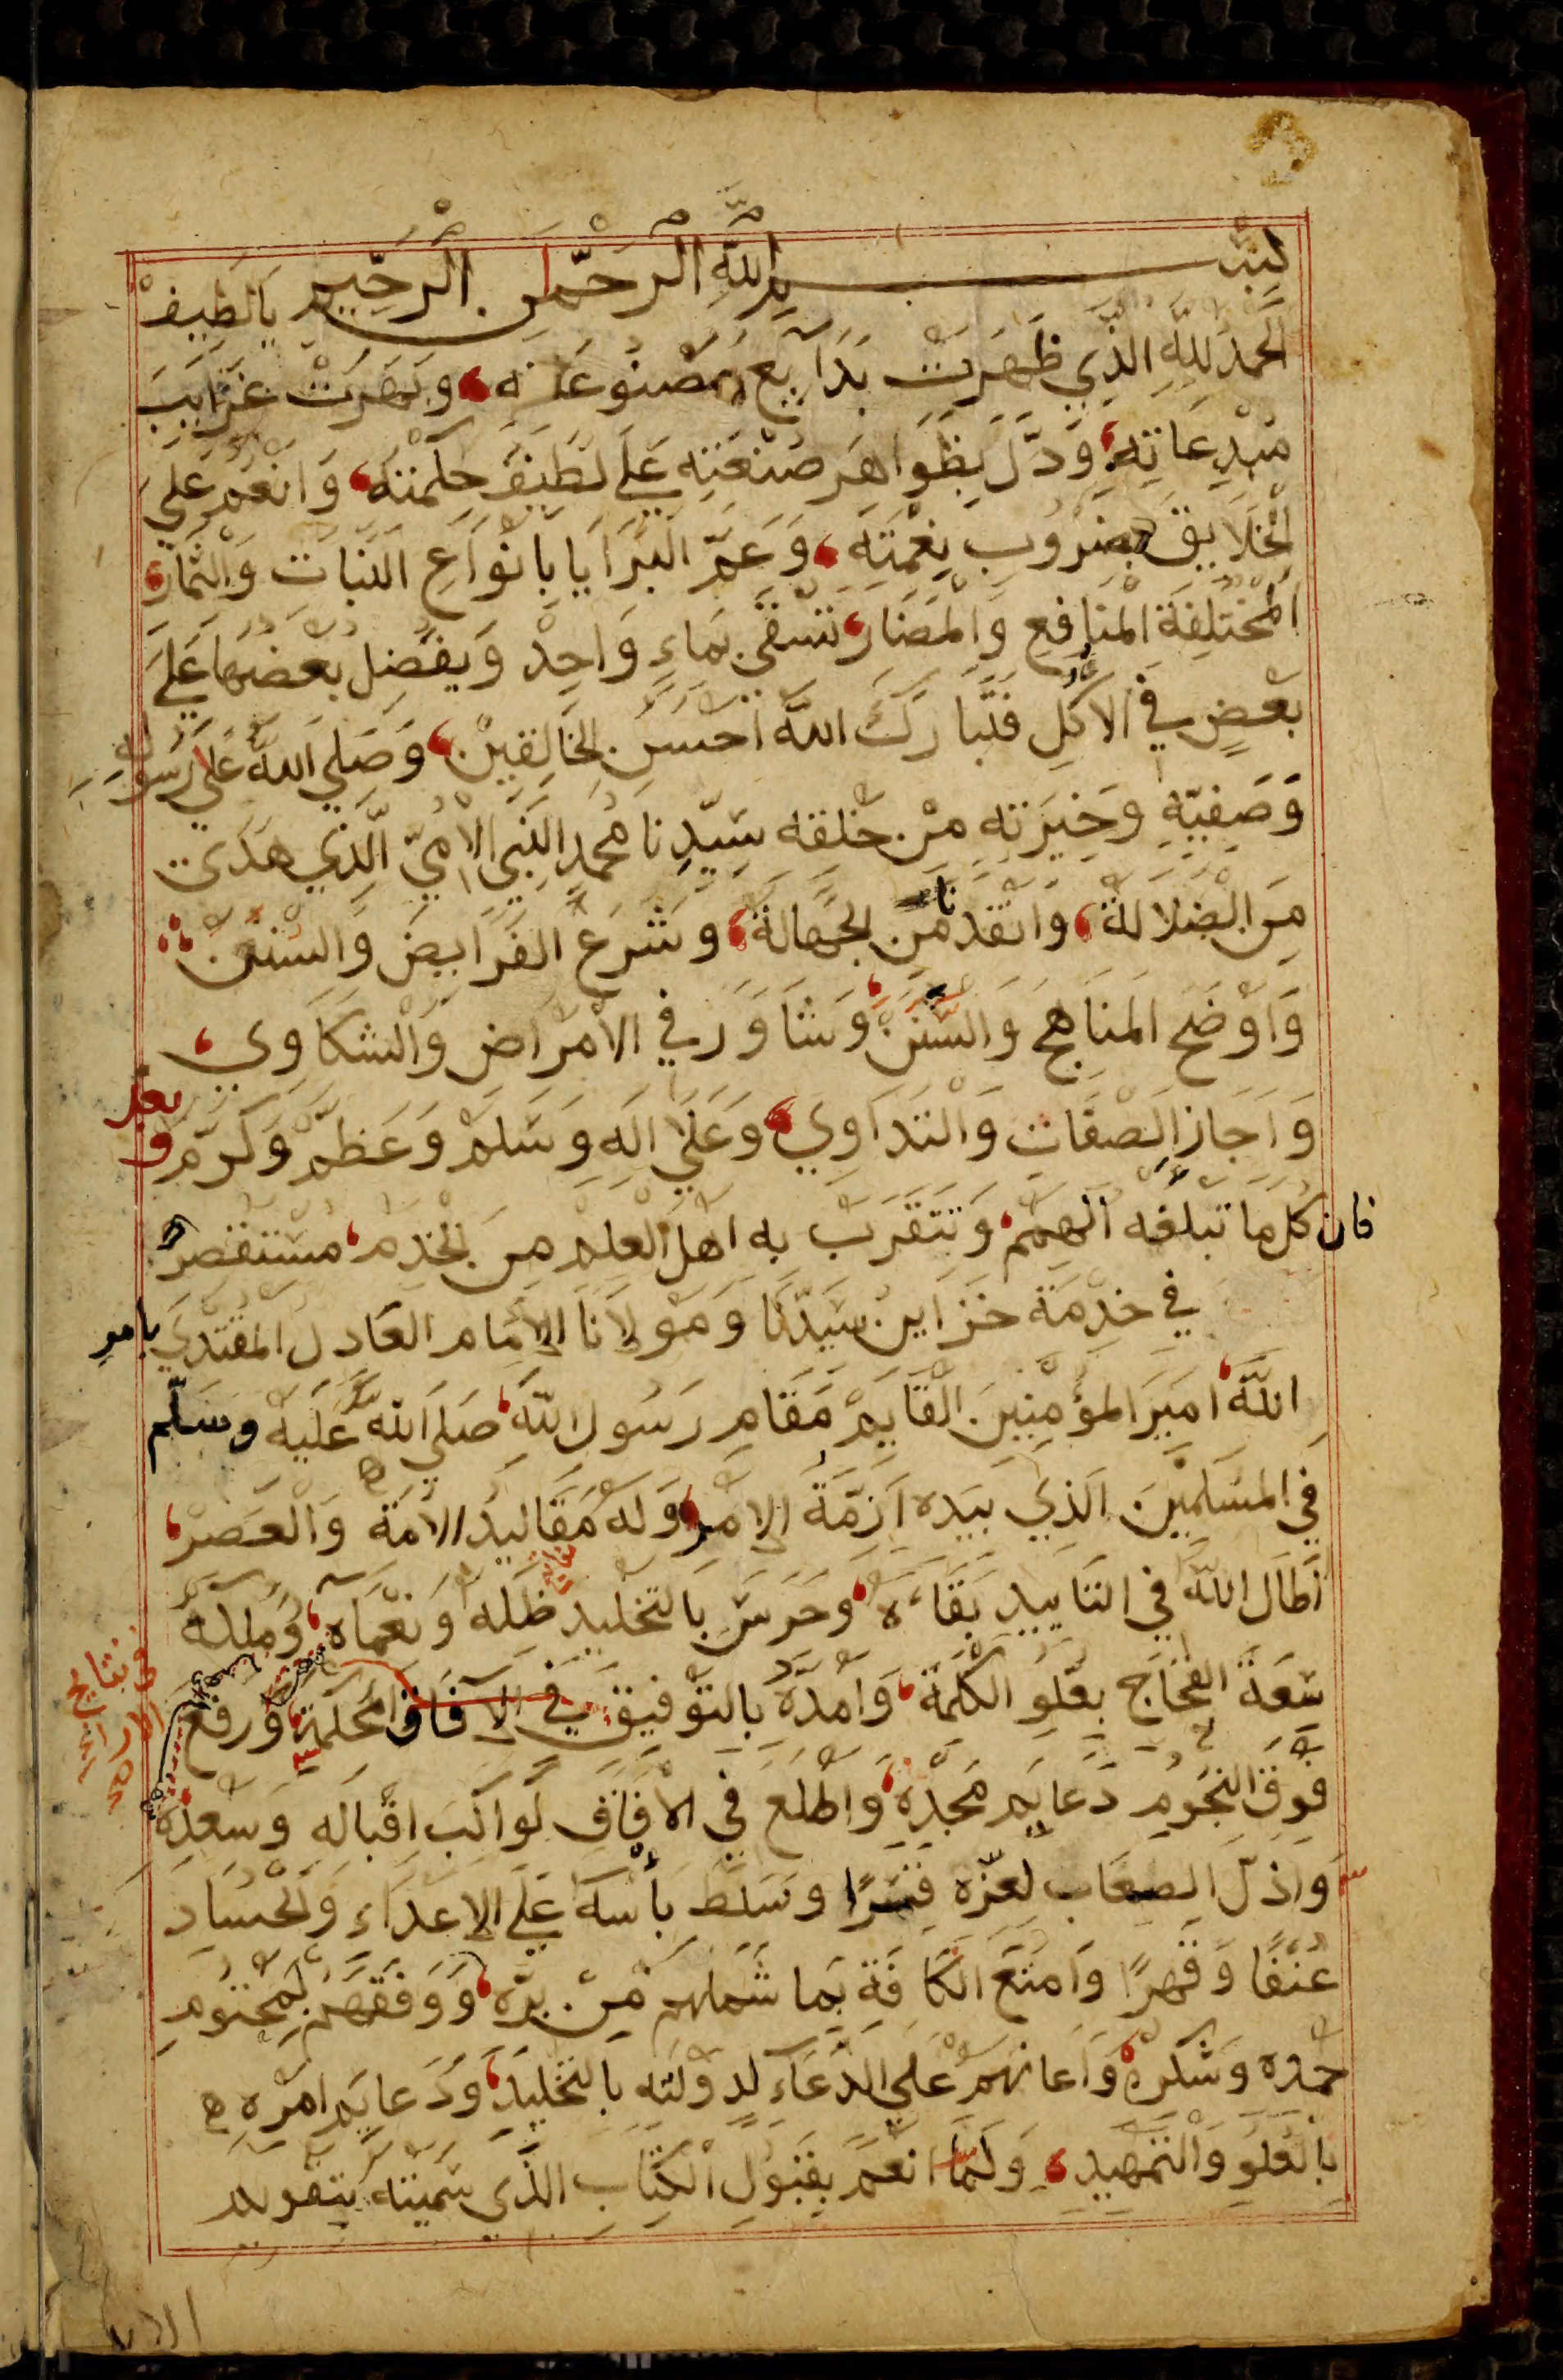 بسم الله الرحمن الرحيم يا لطيف
الحمد لله الذي ظهرت بدايع مصنوعاته وبهرت غرايب
مبدعاته ودل بظواهر صنعته علي لطيف حكمته وانعم علي
الخلايق بضروب نعمته وعم البرايا بانواع النبات والثمار
المختلفة المنافع والمضار تسقي بماء واحد ويفضل بعضها علي
بعض في الاكل فتبارك الله احسن الخالقين وصلي الله علي رسوله
وصفيه وخيرته من خلقه سيدنا محمد النبي الامي الذي هدي
من الضلالة وانقذنا من الجهالة وشرع الفرايض والسنن
واوضح المناهج والسنن وشاور في الامراض والشكاوي
واجاز الصفات والتداوي وعلي اله وسلم وعظم وكرم وبعد
فان كلما تبلغه الهمم وتتقرب به اهل العلم من الخدم مستقصر
في خدمة خزاين سيدنا ومولانا الامام العادل المقتدي بامر
الله امير المؤمنين القايم مقام رسول الله صلي الله عليه وسلم
في المسلمين الذي بيده ازمة الامر وله مقاليد الامة والعصر
اطال الله في التاييد بقاءه وحرس بالتخليد ظله ونعماه وملكه
سعة الفجاج بعلو الكلمة وامده بالتوفيق في الآفاق المحكمة ورفع
فوق النجوم دعايم مجده واطلع في الافاق كواكب اقباله وسعده
واذل الصعاب لعزه قسرا وسلط بأسه علي الاعداء والحساد
عنفا وقهرا وامتع الكافة بما شملهم من بره ووفقهم لمحتوم
حمده وشكره واعانهم علي الدعآء لدولته بالتخليد ودعايم امره
بالعلو والتمهيد ولما انعم بقبول الكتاب الذي سميته بتقويم